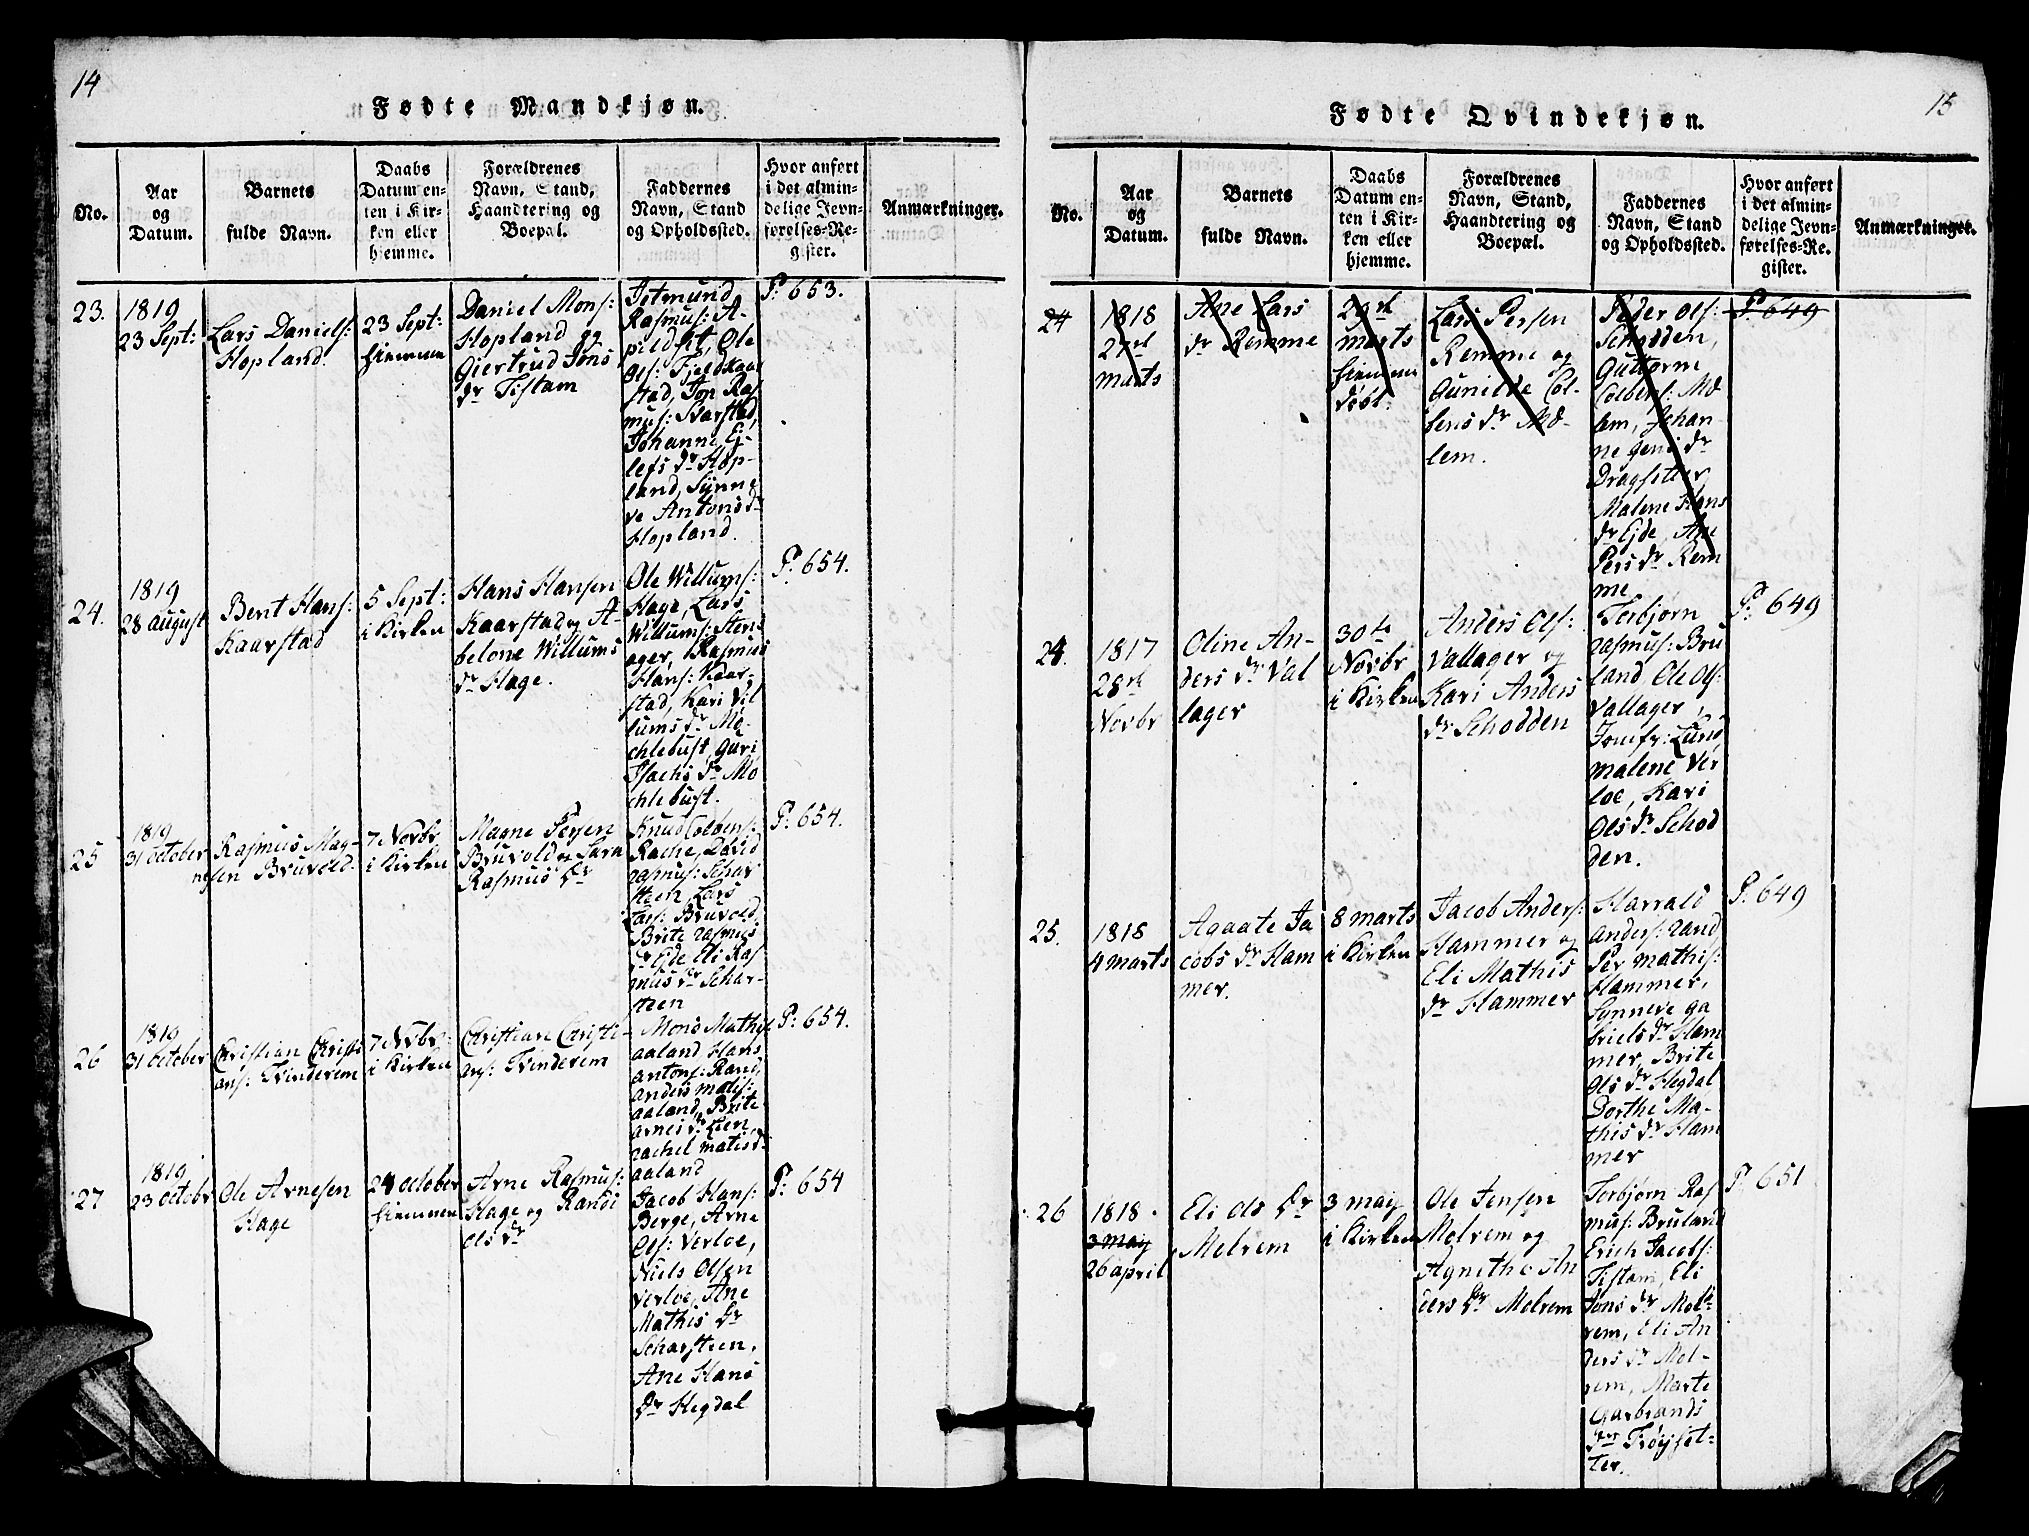 14
Fødte Mandkjøn.
No.
Aar
og
Datum.
Barnets
fulde Navn.
Daabs
Datum en-
ten i Kir-
ken eller
hjemme.
Forældrenes
Navn, Stand,
Haandtering og
Boepæl.
Faddernes
Navn, Stand
og Opholdssted.
Hvor anført
i det almin-
delige Jevn-
førelses-Re-
gister.
Anmærkninger.
23.
1819
23 Sept:
Lars Daniels:
Hopland.
23 Sept:
hiemme
Daniel Mons:
Hopland og
Giertrud Jons
dr Tistam
Istmund
Rasmus: A-
pildhit, Ole
Ols: Fjeldkaar
stad, Jon Ras
mus: Aarstad,
Johanne Ej-
lefs dr Hop-
land, Synne
ve Antons dr
Hopland.
P: 653.
24.
1819
28 August
Bent Hans:
Kaarstad
5 Sept:
i Kirken
Hans Hansen
Kaarstad og A-
belone Willums
dr Hage.
Ole Willums:
Hage, Lars
Willums: Stens
ager, Rasmus
Hans: Kaar-
stad, Kari Vil
lums dr My
chlebust, Guri
Isachs dr My
chlebust.
P: 654.
25
1819
31 October
Rasmus Mag-
nesen Bruvold.
7 Novbr
i Kirken
Magne Persen
Bruvold og Sara
Rasmus Dr
Knud Colbens:
Rache, David
rasmus: Schar
steen, Lars
Lars: Bruvold,
Brite rasmus
dr Ejde Eli Ras
mus dr Schar-
steen
P: 654.
26
1819
31 October
Christian Christi
ans: Tvinderem
7 Novbr
i Kirken
Christian Christi-
ans: Tvinderem
Mons Mathis
aaland Hans
antons: Rand,
anders matis:
aaland, Brite
arnes dr Lien
rachel matis dr
aaland
P: 654.
27
1819
23 octobr
Ole Arnesen
Hage
24 october
hiemmen
Arne Rasmus:
Hage og Randi
Ols dr
Jacob Hans:
Berge, Arne
Ols: Verloe,
Niels Olsen
Verloe, Ane
Mathis dr
Scharsteen,
Ane Hans
Dr Hegdal
P: 654
15
Fødte Qvindekjøn.
No.
Aar
og
Datum.
Barnets
fulde Navn.
Daabs
Datum en-
ten i Kir-
ken eller
hjemme.
Forældrenes
Navn, Stand,
Haandtering og
Boepæl.
Faddernes
Navn, Stand
og Opholdssted.
Hvor anført
i det almin-
delige Jevn-
førelses-Re-
gister.
Anmærkninger.
24
1818
marts
Ane Lars
dr Remme
marts
hiemme
døbt.
Lars Persen
Remme og
Gunilde Col-
bens dr Mø-
lem.
Peder Ols:
Schodden,
Guttorm
Colbens: Mø
lem, Johan-
ne Jens dr
Dragseter,
Malene Hans
dr Ejde, Ane
Pers dr Rem
me
P: 649
24.
1817
28de
Novbr
Oline An-
ders dr Val
lager
30te
Novbr
i Kirken
Anders Ols:
Vallager og
Kari Anders
dr Schodden
Torbjørn
rasmus: Bru
land Ole Ols:
Vallager,
Jomfr: Lund
malene Ver
loe, Kari
Ols dr Schod
den.
P: 649
25.
1818
4 marts
Agaate Ja
cobs dr Ham
mer.
8 marts
i Kirken
Jacob Anders:
Hammer og
Eli Mathis
dr Hammer
Harrald
anders: rand
Per mathis:
Hammer,
Synneve ga
briels dr Ham
mer, Brite
Ols dr Hegdal
Dorthe Ma-
this dr Ham
mer
P: 649
26
1818
3 maj
26 april
Eli Ols Dr
Melvem
3 maj
i Kirken
Ole Jensen
Melvem og
Agnethe An
ders Dr Melvem
Torbjørn Ras
mus: Bruland
Erich Jacobs:
Tistam, Eli
Jons dr Mel-
vem, Eli An
ders dr Mel-
vem, Marte
Garbrands
dr Frøyset-
ter.
P: 651